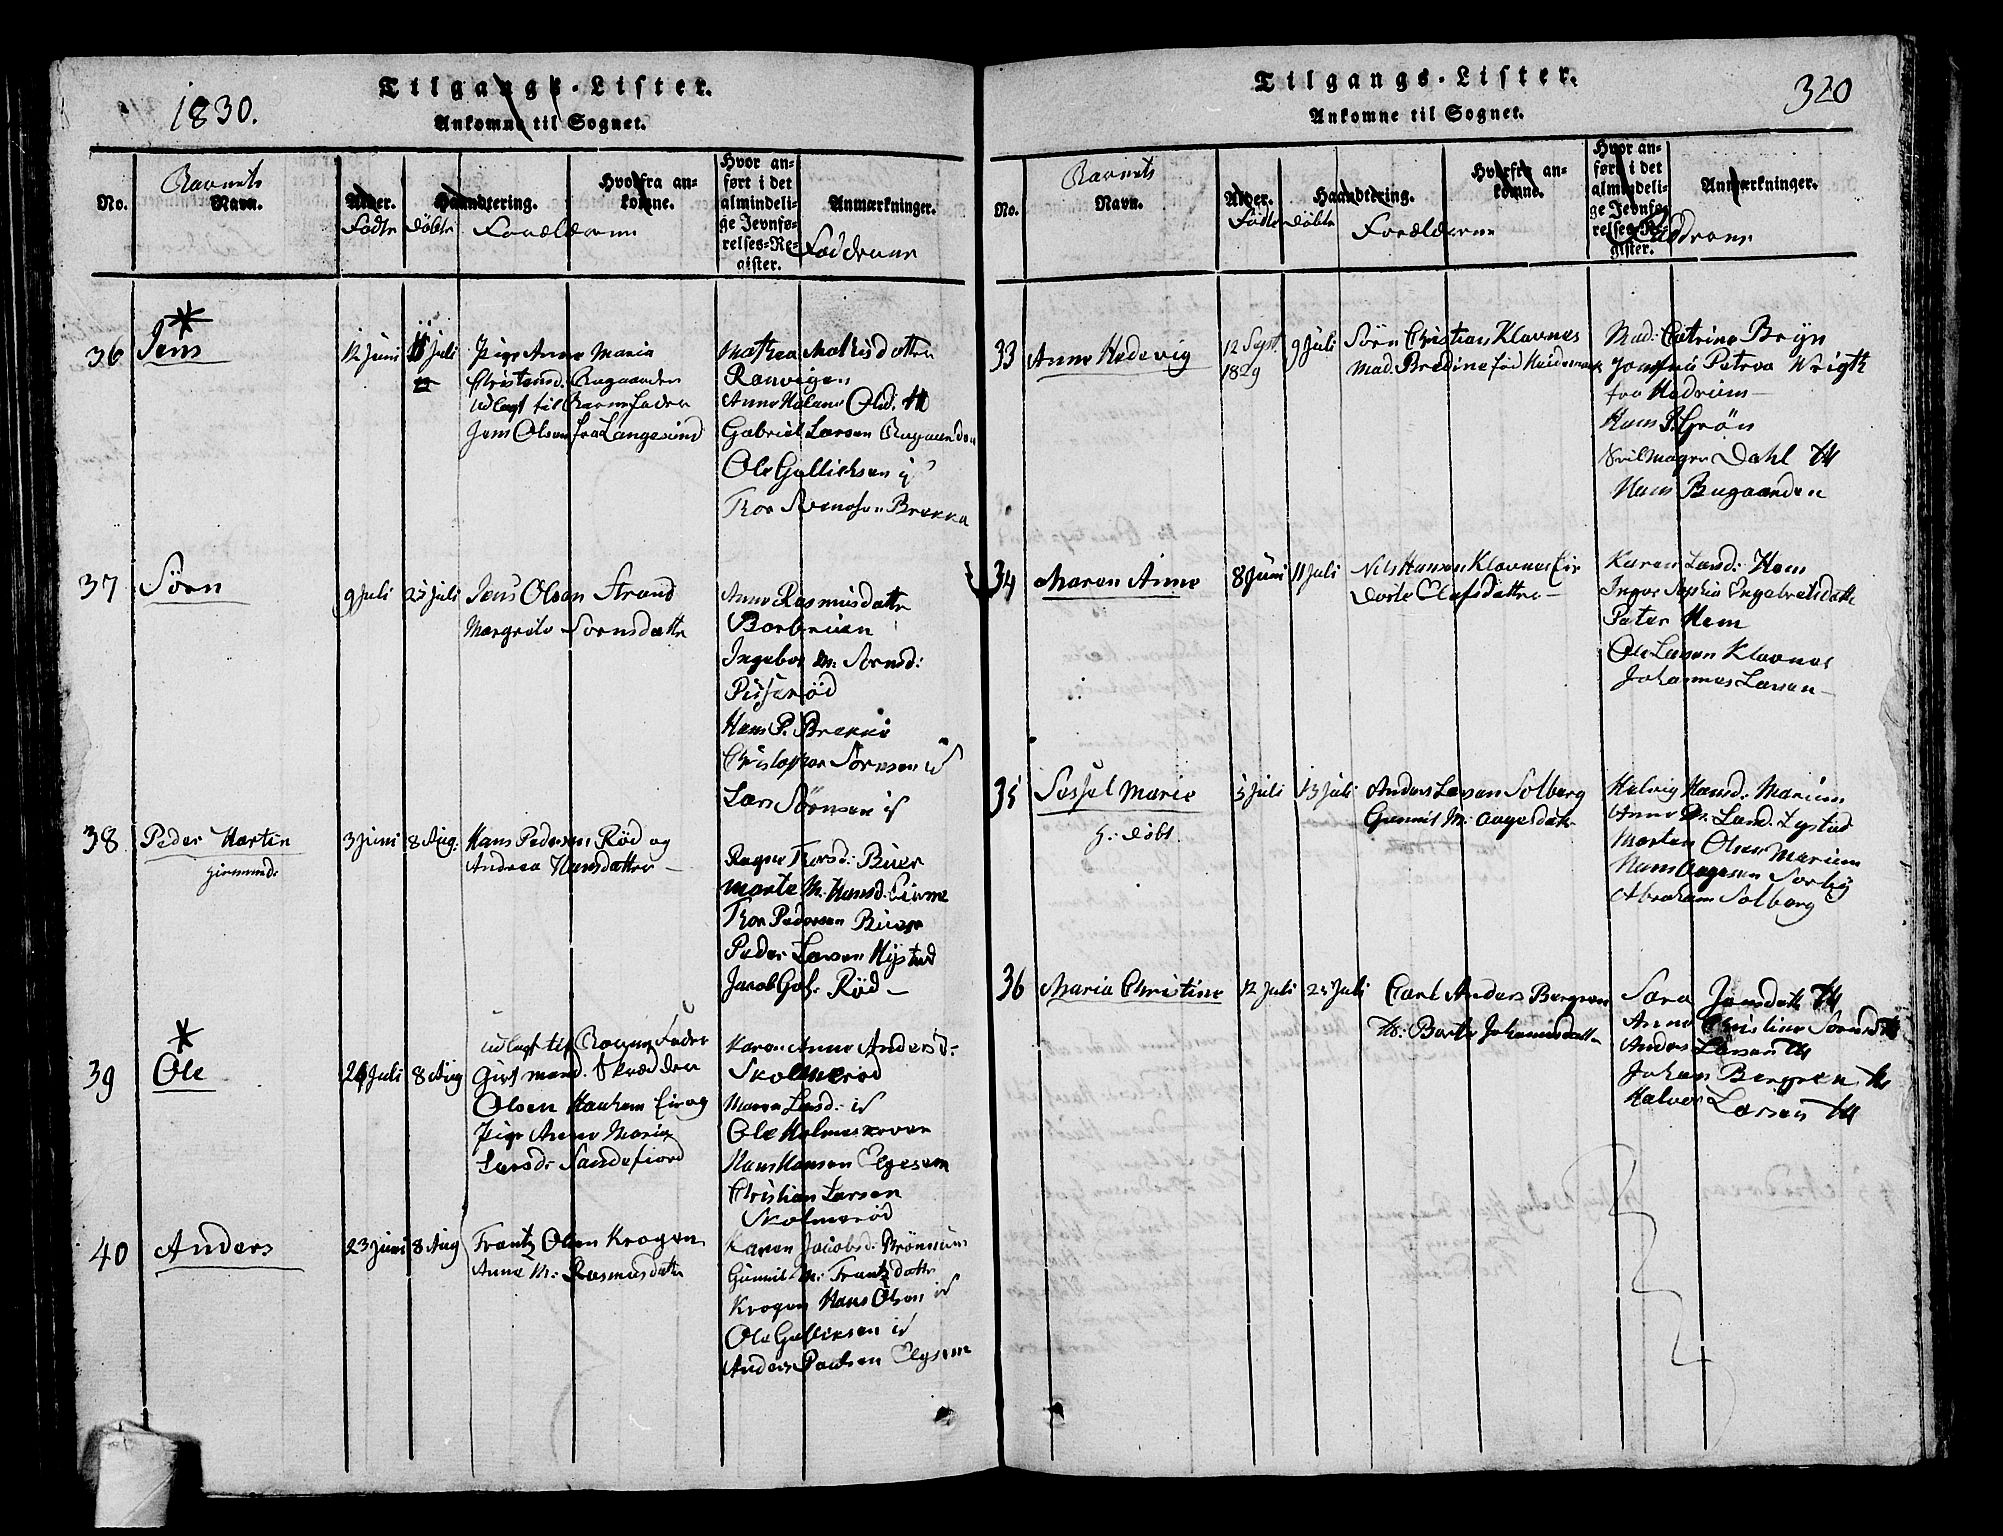 1830.
Tilgangs-Lister.
Ankomne til Sognet.
No.
Barnets
Navn.
Alder.
Födte
döbte
Haandtering.
Forælderne
Hvorfra an-
komne.
Hvor an-
ført i det
almindeli-
ge Jevnfø-
relses-Re-
gister.
Anmærkninger.
Fadderne
36
Jens
12 Juni
11 Juli
Pige Anne Maria
Christensd. Bugaarden
udlagt til Barnefader
Jens Olsen fra Langesund
Mathea Mathisdatter
Ranvigen
Anne Helene Olsd. th
Gabriel Larsen Bugaarden
Ole Gullichsen
Thor Svendsen Brekka
37
Sörn
9 Juli
25 Juli
Jens Olsen Strand
Margrete Sörnsdattr
Anne Rasmusdattr
Barbrüen
Ingebor M. Sornsd:
Pisserød
Hans P. Brekke
Christopher Sörnsen id
Lars Sörnsen id
38
Peder Martin
hiemmed.
3 Juni
8 Aug.
Hans Pedersen Rød og
Andrea Hansdatter
Ragne Thorsd: Buer
Marte M. Hansd:
Thor Pedersen Buer
Peder Larsen Hystad
Jacob Rød
39
Ole
24 Juli
8 Aug
udlagt til Barnefader
Gift mand Skrædder
Olsen og
Pige Anne Maria
Larsd: Sandefiord
Karen Anne Andersd:
Skolmerød
Maren Larsd: id
Ole
Hans Hansen Elgesem
Christian Larsen
Skolmerød
40
Anders
23 Juni
8 Aug
Frantz Olsen Krogen
Anne M: Rasmusdattr
Karen Jacobsd:
Gunnil M: Frantzdattr
Krogen Hans Olsen id
Ole Gullicksen id
Anders Paulsen Elgsem
Tilgangs-Lister.
320
Ankomne til Sognet.
No.
Barnets
Navn.
Alder.
Födte
döbte
Haandtering.
Forælderne
Hvorfra an-
komne.
Hvor an-
ført i det
almindeli-
ge Jevnfø-
relses-Re-
gister.
Anmærkninger.
Fadderne
33
Anne Hedevig
12 Sept.
1829
9 Juli
Sörn Christian Klavnes
Mad. Bredine föd Heidemark
Mad. Catrine Bryn
Josephia Petrea Wrigth
fra Hedrum
Hans P. Grön
Seilmager Dahl th
Hans Bugaarden
34
Maren Anne
8 Juni
11 Juli
Nils Hansen Klavnes Eie
Dorte Olafsdatter
Karen Larsd: Hem
Inger Sophia Engebretsdattr
Peter Hem
Ole Larsen Klavnes
Johannes Larsen
35
Sessel Marie
h: döbt
5 Juli
13 Juli
Anders Larsen Solberg
Gunnil M: Aagesdattr
Helvig Hansd: Marium
Anne M. Larsd. Lystad
Morten Olsen Marium
Hans Aagesen Sorby
Abraham Solberg
36
Maria Christine
12 Juli
25 Juli
Carl Anders Bergren
th: Berte Johannisdattr
Sara Jensdattr th
Anne Christine Sornsd th
Anders Larsen th
Johan Bergren th
Halvor Larsen th